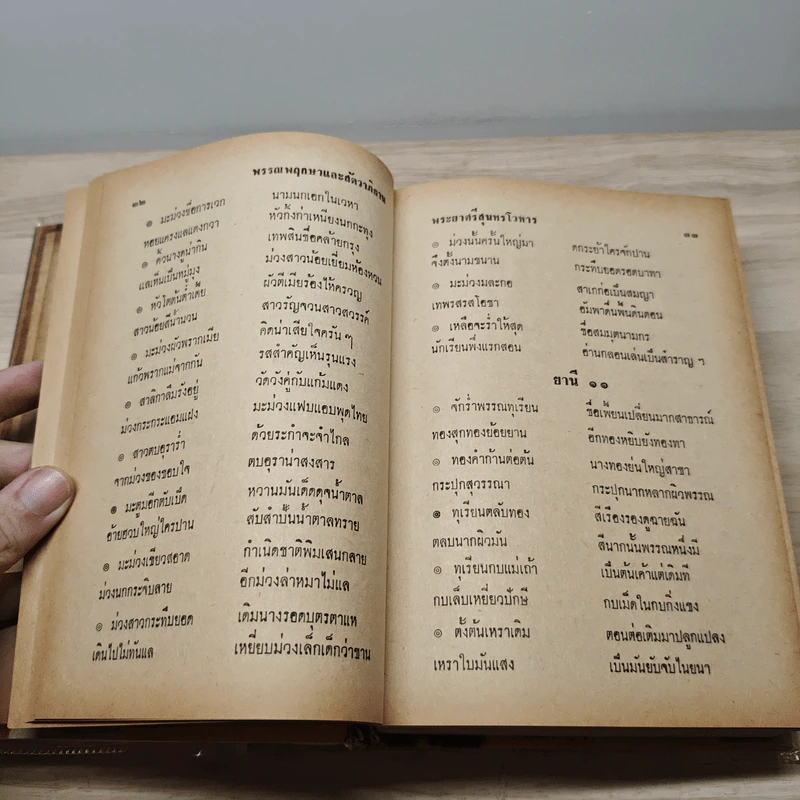 ๓๒ พรรณพฤกษาและสัตวาภิธาน
๏ มะม่วงชื่อการเวก นามนกเอกในเวหา
หอยแครงแลแตงกวา หัวกิ้งก่าเหนียงนกกะทุง
๏ คั่วนางดูน่ากิน เทพสินชื่อคล้ายกรุง
แลเห็นเป็นหมู่มุง ม่วงสาวน้อยเยี่ยมห้องหวน
๏ หัวโตต้นต่ำเตี้ย ผัวตีเมียร้องไห้ครวญ
สาวน้อยสีน้ำนวน สาวรัญจวนสาวสวรรค์
๏ มะม่วงผัวพรากเมีย คิดน่าเสียใจครัน ๆ
แก้วพรากแม่จากกัน รสสำคัญเห็นรุนแรง
๏ สาลิกาลืมรังอยู่ วัดวังคู่กับแก้มแดง
ม่วงกระกระแอมแฝง มะม่วงแฟบแอบพุดไทย
๏ สาวตบอุราร่ำ ด้วยระกำจะจำไกล
จากม่วงของชอบใจ ตบอุราน่าสงสาร
๏ มะตูมอีกตับเป็ด หวานมันเด็ดดุจน้ำตาล
อ้ายฮวบใหญ่ใครปาน สับสำปั้นน้ำตาลทราย
๏ มะม่วงเขียวสอาด กำเนิดชาติพิมเสนกลาย
ม่วงนกกระจิบลาย อีกม่วงล่าหมาไม่แล
๏ ม่วงสาวกระทืบยอด เดิมนางรอดบุตรตาแห
เดินไปไม่ทันแล เหยียบม่วงเล็กเด็กว่าขาน
พระยาศรีสุนทรโวหาร ๓๓
๏ ม่วงนั้นครั้นใหญ่มา ดกระย้าใครจักปาน
จึงตั้งนามขนาน กระทืบยอดรอดบาทา
๏ มะม่วงมละกอ สาเกก่อเป็นสมญา
เทพรสรสโอชา อัมพาดื่นพื้นดินดอน
๏ เหลือจะร่ำให้สุด ชื่อสมมุตนามกร
นักเรียนพึ่งแรกสอน อ่านกลอนเล่นเป็นสำราญ ฯ
ยานี ๑๑
๏ จักร่ำพรรณทุเรียน ชื่อเพี้ยนเปลี่ยนมากสาธารณ์
ทองสุกทองย้อยยาน อีกทองหยิบยังทองทา
๏ ทองคำก้านต่อต้น นางทองย่นใหญ่สาขา
กระปุกสุวรรณา กระปุกนากหลากผิวพรรณ
๏ ทุเรียนตลับทอง สีเรืองรองดูฉายฉัน
ตลบนากผิวมัน สีนากนั้นพรรณหนึ่งมี
๏ ทุเรียนกบแม่เถ้า เป็นต้นเค้าแต่เดิมที
กบเล็บเหยี่ยวปักษี กบเม็ดในกบกิ่งแขง
๏ ตั้งต้นเหราเดิม ตอนต่อเติมมาปลูกแปลง
เหราใบมันแสง เป็นมันยับจับไนยนา